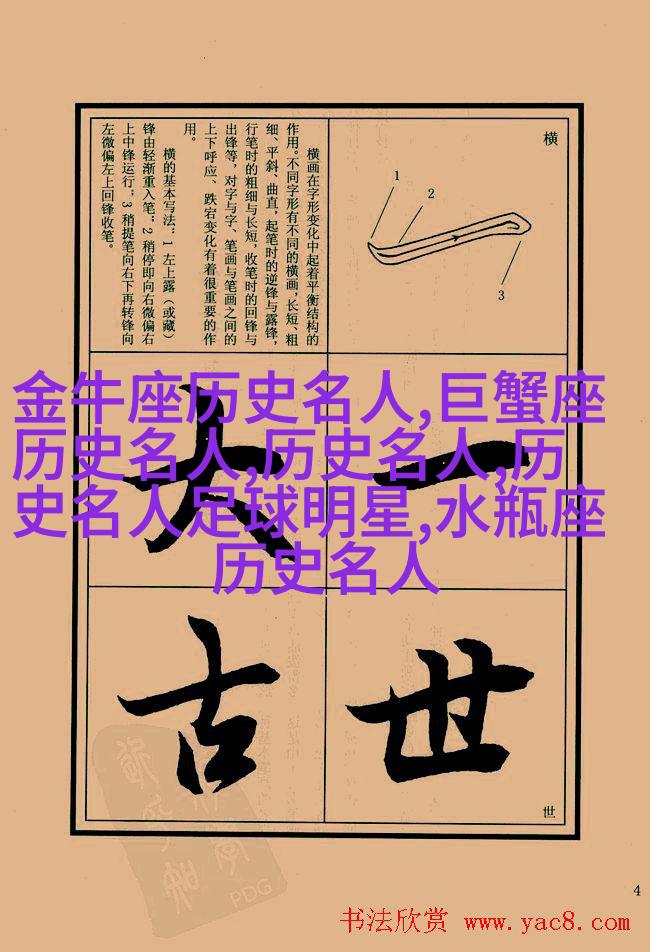 横
1
2
3
横画在字形变化中起着平衡结构的
作用。不同字形有不同的横画，长短、粗
细、平斜、曲直，起笔时的逆锋与露锋，
行笔时的粗细与长短，收笔时的回锋与
出锋等，对字与字、笔画与笔画之间的
上下呼应、跌宕变化有着很重要的作
用。
横的基本写法：1 左上露（或藏）
锋由轻渐重入笔；2 稍停即向右微偏右
上中锋运行；3 稍提笔向右下再转锋向
左微偏左上回锋收笔。
金牛座历史名人,巨蟹座
历史名人,历史名人,历
史名人足球明星,水瓶座
历史名人
一
大
世
古
世
PDG
4
书法欣赏 www.yac8.com